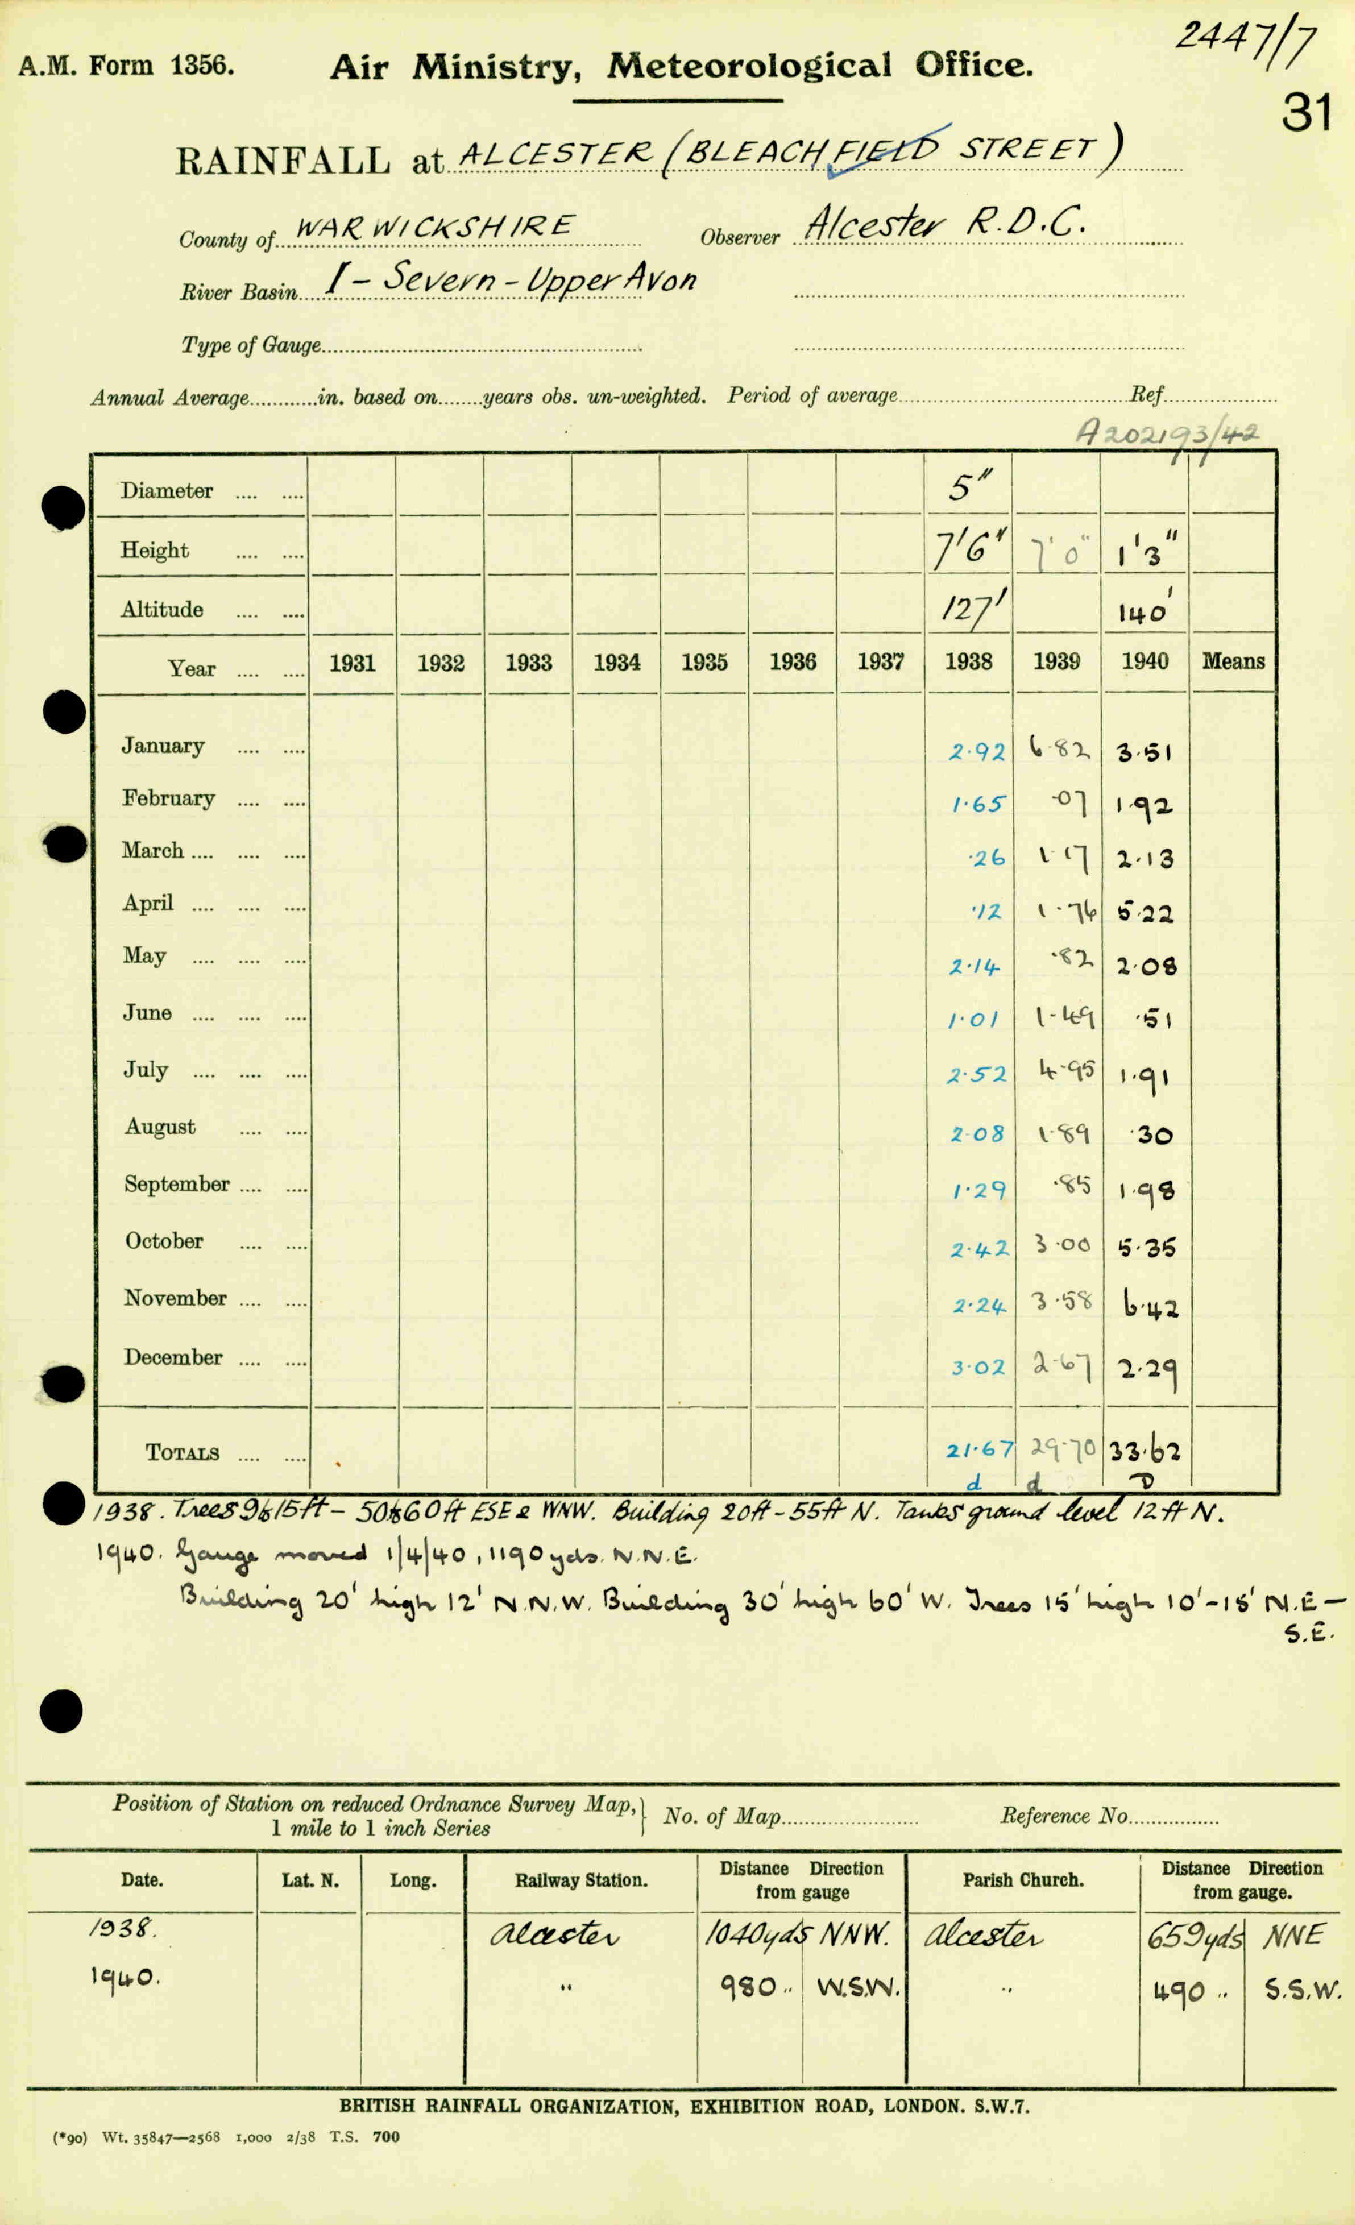 2447/7
A.M. Form 1356. Air Ministry, Meteorological Office.
31
RAINFALL at ALCESTER (BLEACHFIELD STREET)
County of WARWICKSHIRE Observer Alcester R.D.C.
River Basin I - Severn - Upper Avon
Type of Gauge
Annual Average in. based on years obs. un-weighted. Period of average Ref.
A202193/42
Diameter 5"
Height 7'6" 7'0" 1'3"
Altitude 127' 140'
Year 1931 1932 1933 1934 1935 1936 1937 1938 1939 1940 Means
January 2.92 6.82 3.51
February 1.65 .07 1.92
March .26 1.17 2.13
April .12 1.76 5.22
May 2.14 .82 2.08
June 1.01 1.49 .51
July 2.52 4.95 1.91
August 2.08 1.89 .30
September 1.29 .85 1.98
October 2.42 3.00 5.35
November 2.24 3.58 6.42
December 3.02 2.67 2.29
TOTALS 21.67 29.70 33.62
d d D
1938. Trees 9 to 15ft - 50 to 60ft ESE & WNW. Building 20ft - 55ft N. Tanks ground level 12ft N.
1940. Gauge moved 1/4/40, 1190 yds. N.N.E.
Building 20' high 12' N.N.W. Building 30' high 60' W. Trees 15' high 10'-15' N.E -
S.E.
Position of Station on reduced Ordnance Survey Map, No. of Map Reference No.
1 mile to 1 inch Series
Date. Lat. N. Long. Railway Station. Distance Direction from gauge Parish Church. Distance Direction from gauge.
1938. Alcester 1040yds NNW. Alcester 659yds NNE
1940. " 980 " W.S.W. " 490 " S.S.W.
BRITISH RAINFALL ORGANIZATION, EXHIBITION ROAD, LONDON. S.W.7.
(*90) Wt. 35847—2568 1,000 2/38 T.S. 700